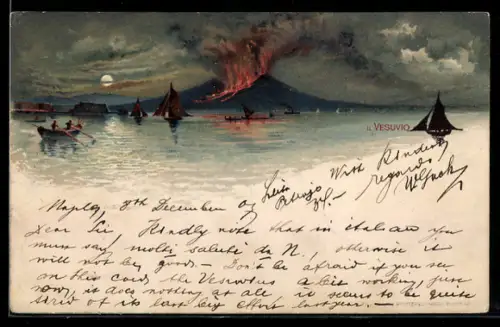 IL VESUVIO
With Kindest
regards
Naples 8th December 09
Dear Sir Kindly note that in italian you
must say "molti saluti da N., otherwise it
will not be good. – Don't be afraid if you see
on this card the Vesuvius a bit working, just
now, it does nothing at all, it seems to be quite
tired of its last big effort last year. –